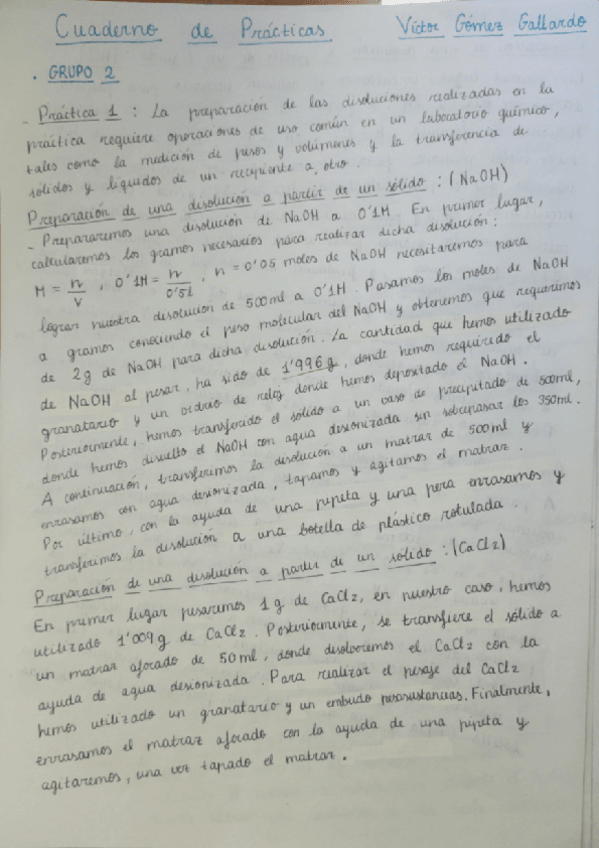 Cuaderno de Prácticas Víctor Gómez Gallardo
. GRUPO 2
- Práctica 1 : La preparación de las disoluciones realizadas en la
práctica requiere operaciones de uso común en un laboratorio químico,
tales como la medición de pesos y volúmenes y la transferencia de
sólidos y líquidos de un recipiente a otro.
Preparación de una disolución a partir de un sólido : (NaOH)
- Prepararemos una disolución de NaOH a 0'1M En primer lugar,
calcularemos los gramos necesarios para realizar dicha disolución :
M = n/V , 0'1M = n/0'5l , n = 0'05 moles de NaOH necesitaremos para
lograr nuestra disolución de 500ml a 0'1M. Pasamos los moles de NaOH
a gramos conociendo el peso molecular del NaOH y obtenemos que requerimos
de 2g de NaOH para dicha disolución. La cantidad que hemos utilizado
de NaOH al pesar, ha sido de 1'996g, donde hemos requerido el
granatario y un vidrio de reloj donde hemos depositado el NaOH.
Posteriormente, hemos transferido el sólido a un vaso de precipitado de 500ml,
donde hemos disuelto el NaOH con agua desionizada sin sobrepasar los 350ml.
A continuación, transferimos la disolución a un matraz de 500ml y
enrasamos con agua desionizada, tapamos y agitamos el matraz.
Por último, con la ayuda de una pipeta y una pera enrasamos y
transferimos la disolución a una botella de plástico rotulada.
Preparación de una disolución a partir de un sólido : (CaCl2)
En primer lugar pesaremos 1g de CaCl2, en nuestro caso, hemos
utilizado 1'009g de CaCl2. Posteriormente, se transfiere el sólido a
un matraz aforado de 50ml, donde disolveremos el CaCl2 con la
ayuda de agua desionizada. Para realizar el pesaje del CaCl2
hemos utilizado un granatario y un embudo pesasustancias. Finalmente,
enrasamos el matraz aforado con la ayuda de una pipeta y
agitaremos, una vez tapado el matraz.